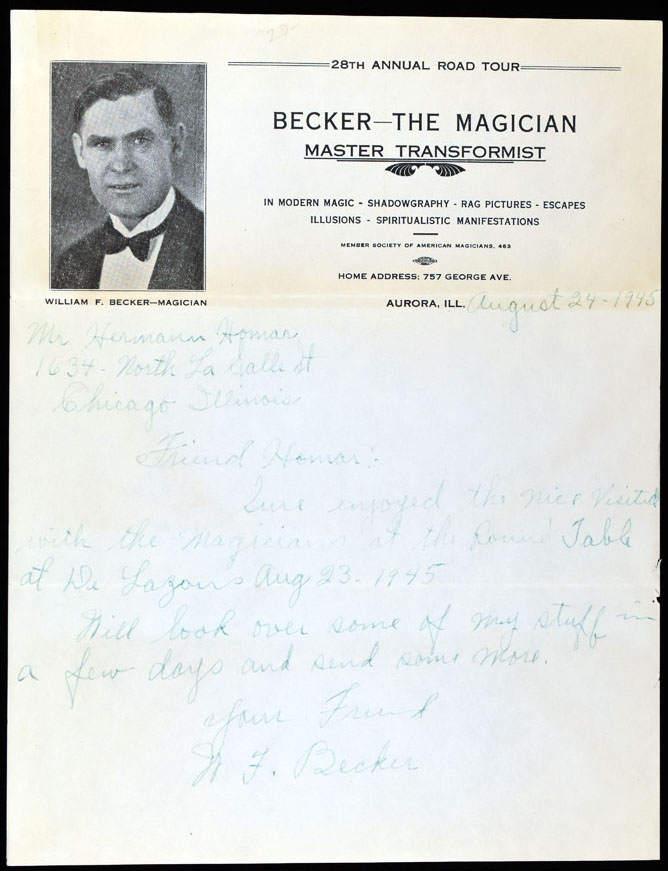 28TH ANNUAL ROAD TOUR
BECKER—THE MAGICIAN
MASTER TRANSFORMIST
IN MODERN MAGIC - SHADOWGRAPHY - RAG PICTURES - ESCAPES
ILLUSIONS - SPIRITUALISTIC MANIFESTATIONS
MEMBER SOCIETY OF AMERICAN MAGICIANS, 463
HOME ADDRESS: 757 GEORGE AVE.
WILLIAM F. BECKER—MAGICIAN
AURORA, ILL. August 24-1945
Mr Hermann Homar
1634- North La Salle St
Chicago Illinois
Friend Homar:
Sure enjoyed the nice
with the magicians at the Round Table
at De Lazons Aug 23-1945
Will look over some of my stuff in
a few days and send some more.
Your Friend
W F. Becker